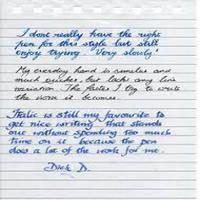 I dont really have the right
pen for this style but still
enjoy trying 'Very slowly'
My everyday hand is similar and
much quicker, but lacks any line
variation. The faster I try to write
the worse it becomes.
Italic is still my favourite to
get nice writing that stands
out without spending too much
time on it because the pen
does a lot of the work for me.
Dick D.